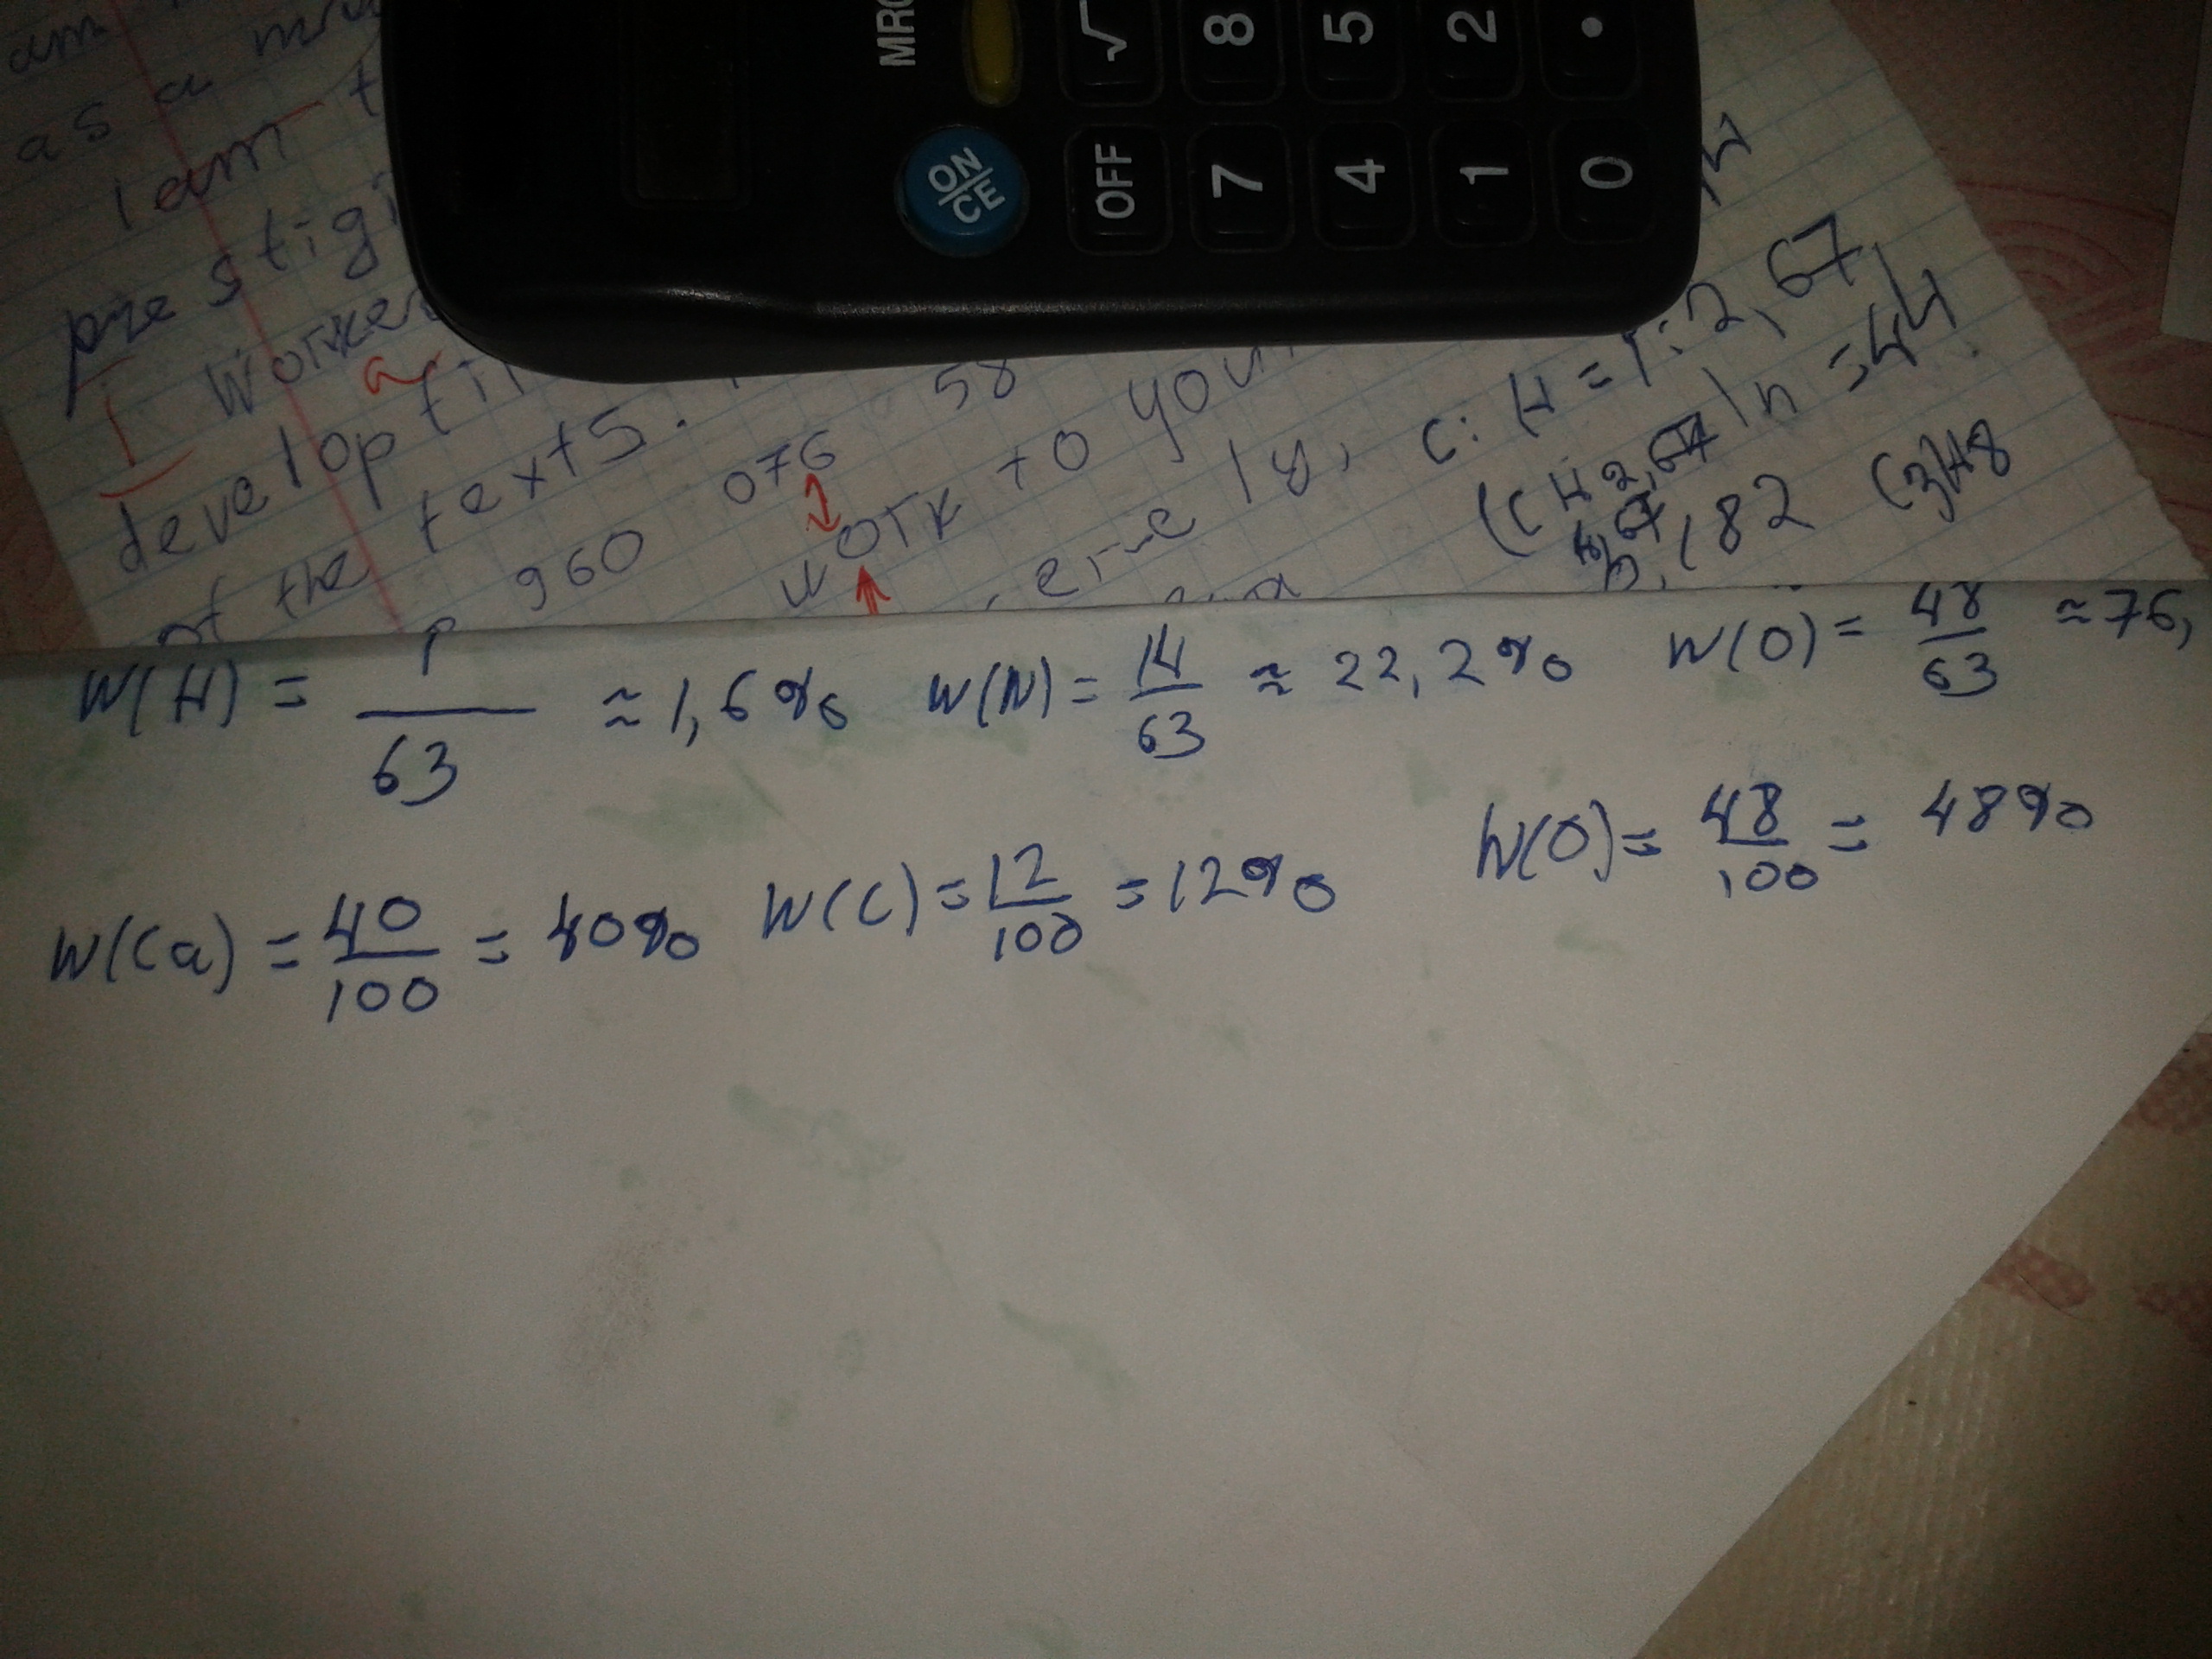 am
as a
I am t
prestigi
I worker
a
develop
of the texts.
960 076 58
work to your
ly,
C:H = 1:2,67
(CH2,67)n = 44
,182 C3H8
MRC √ 8 5 2 .
ON/CE OFF 7 4 1 0
W(H) = 1/63 ≈ 1,6% W(N) = 14/63 ≈ 22,2% W(O) = 48/63 ≈ 76,
W(Ca) = 40/100 = 40% W(C) = 12/100 = 12% W(O) = 48/100 = 48%